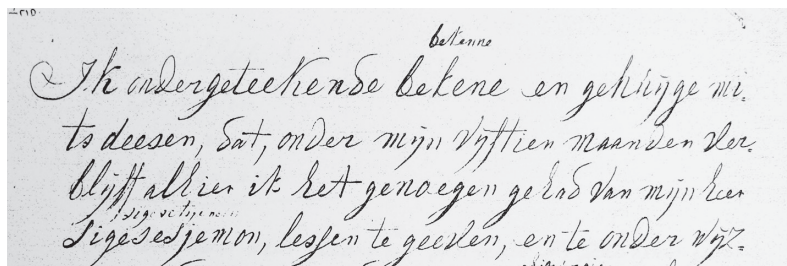 bekenne
Ik ondergeteekende bekene en gehuijge mi-
ts deesen, dat, onder mijn vijftien maanden ver-
blijft alhier ik het genoegen gehad van mijn heer
Sigesesjemon, lessen te geeven, en te onder wijz-